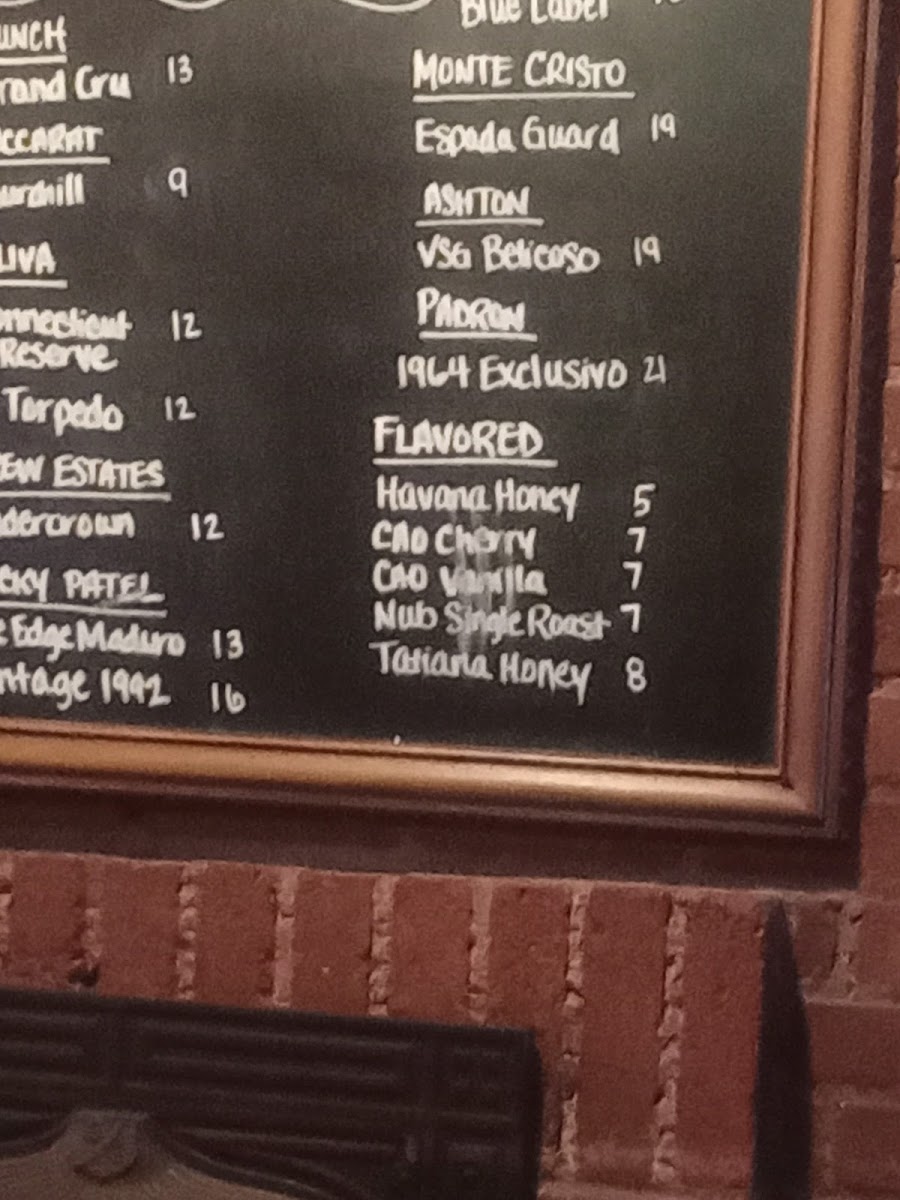 UNCH
rand Cru 13
CCARAT
urchill 9
LIVA
onnecticut 12
Reserve
Torpedo 12
EW ESTATES
dercrown 12
CKY PATEL
e Edge Maduro 13
ntage 1992 16
Blue Label
MONTE CRISTO
Espada Guard 19
ASHTON
VSG Belicoso 19
PADRON
1964 Exclusivo 21
FLAVORED
Havana Honey 5
CAO Cherry 7
CAO Vanilla 7
Nub Single Roast 7
Tatiana Honey 8